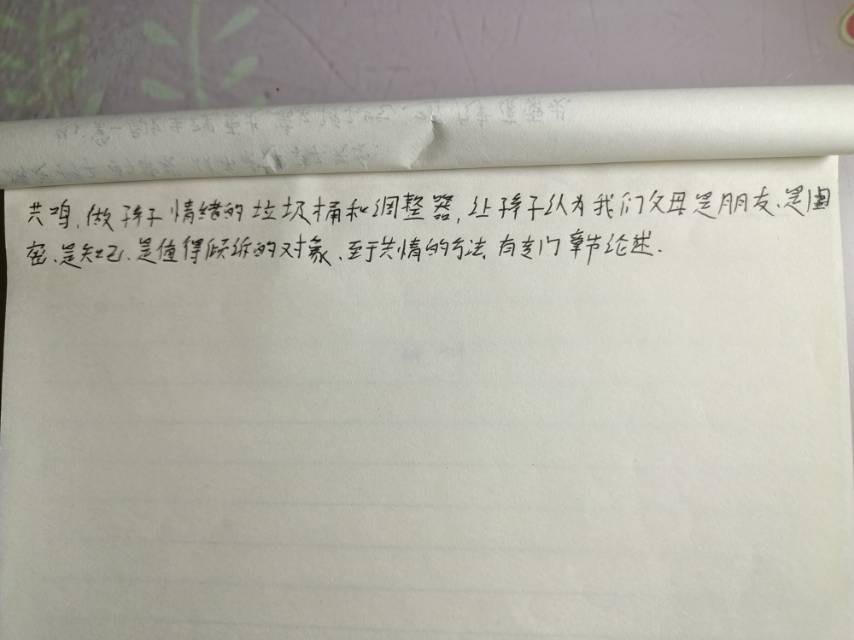 共鸣,做孩子情绪的垃圾桶和调整器,让孩子认为我们父母是朋友、是闺
密、是知己、是值得倾诉的对象、至于共情的方法,有专门章节论述.